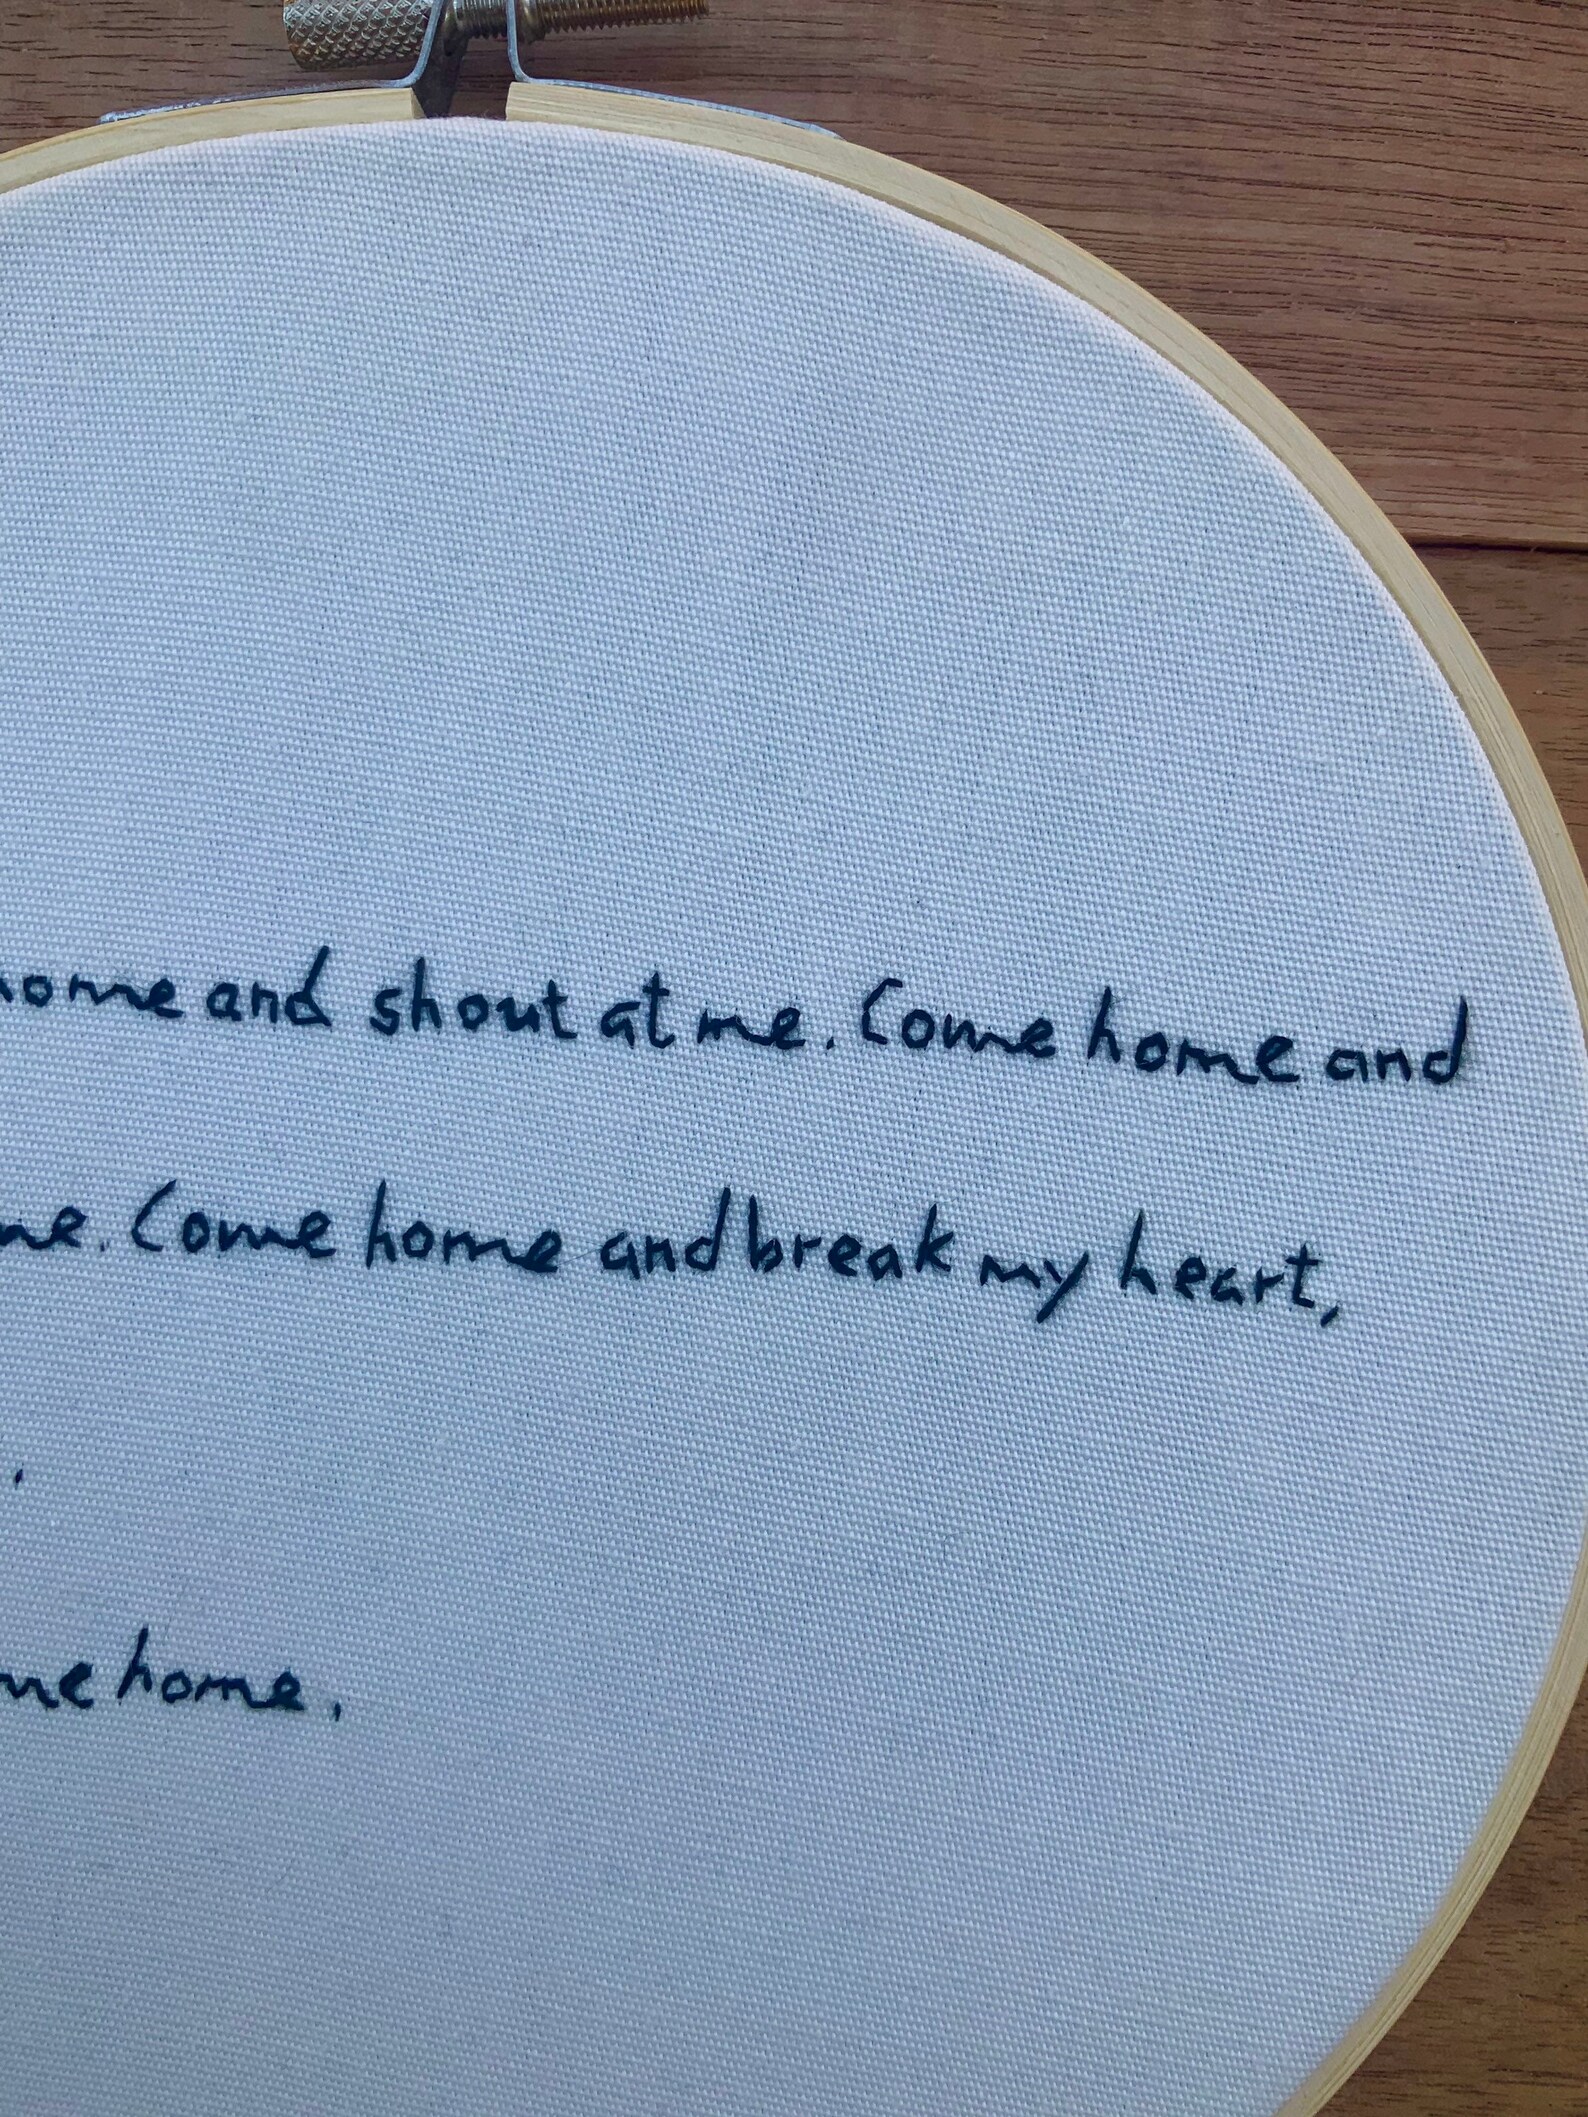 home and shout at me. Come home and
me. Come home and break my heart,
.
home.